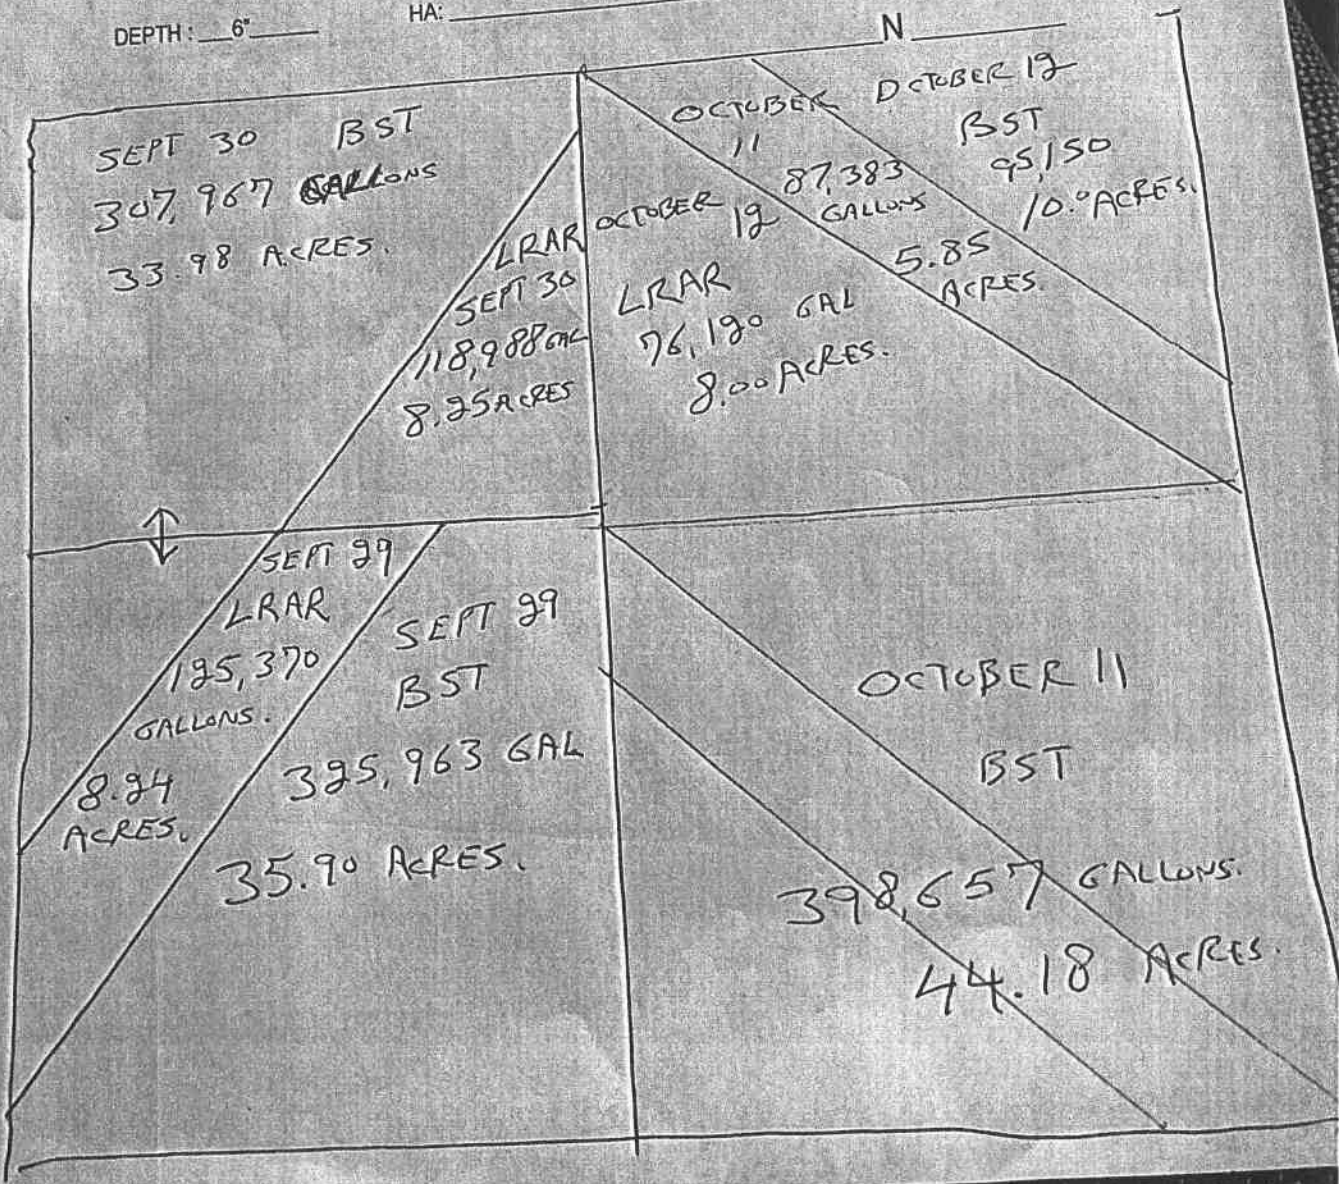 DEPTH: 6"
HA:
N
SEPT 30 BST
307,967 GALLONS
33.98 ACRES.
LRAR
SEPT 30
118,988 GAL
8.25 ACRES
OCTOBER
12
LRAR
76,120 GAL
8.00 ACRES.
OCTOBER
11
87,383
GALLONS
5.85
ACRES.
OCTOBER 12
BST
95,150
10.0 ACRES.
SEPT 29
LRAR
125,370
GALLONS.
8.24
ACRES.
SEPT 29
BST
325,963 GAL
35.90 ACRES.
OCTOBER 11
BST
398,657 GALLONS.
44.18 ACRES.